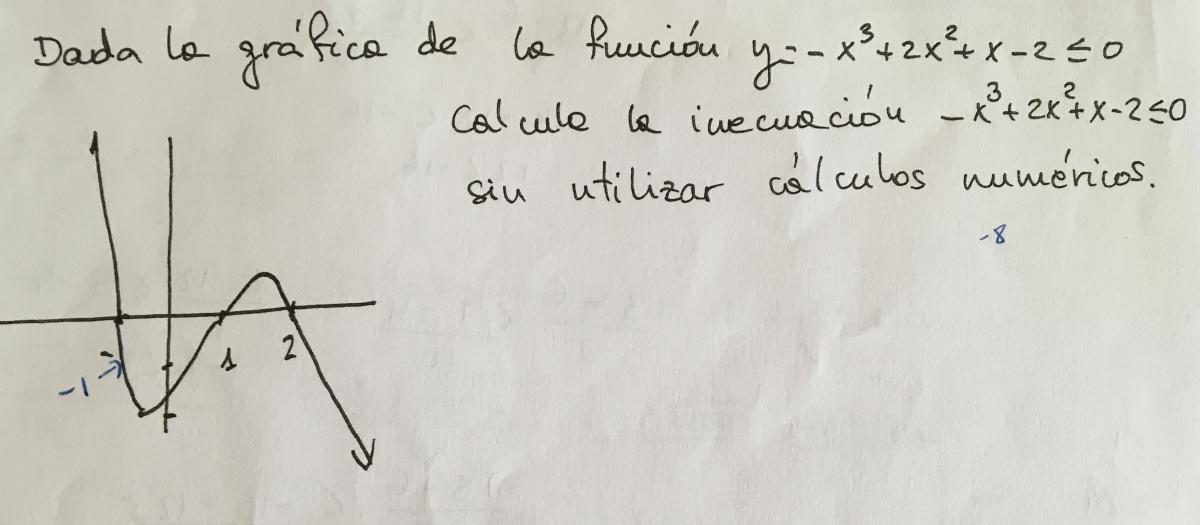 Dada la gráfica de la función y=-x³+2x²+x-2≤0
Calcula la inecuación -x³+2x²+x-2≤0
sin utilizar cálculos numéricos.
-8
1
2
-1